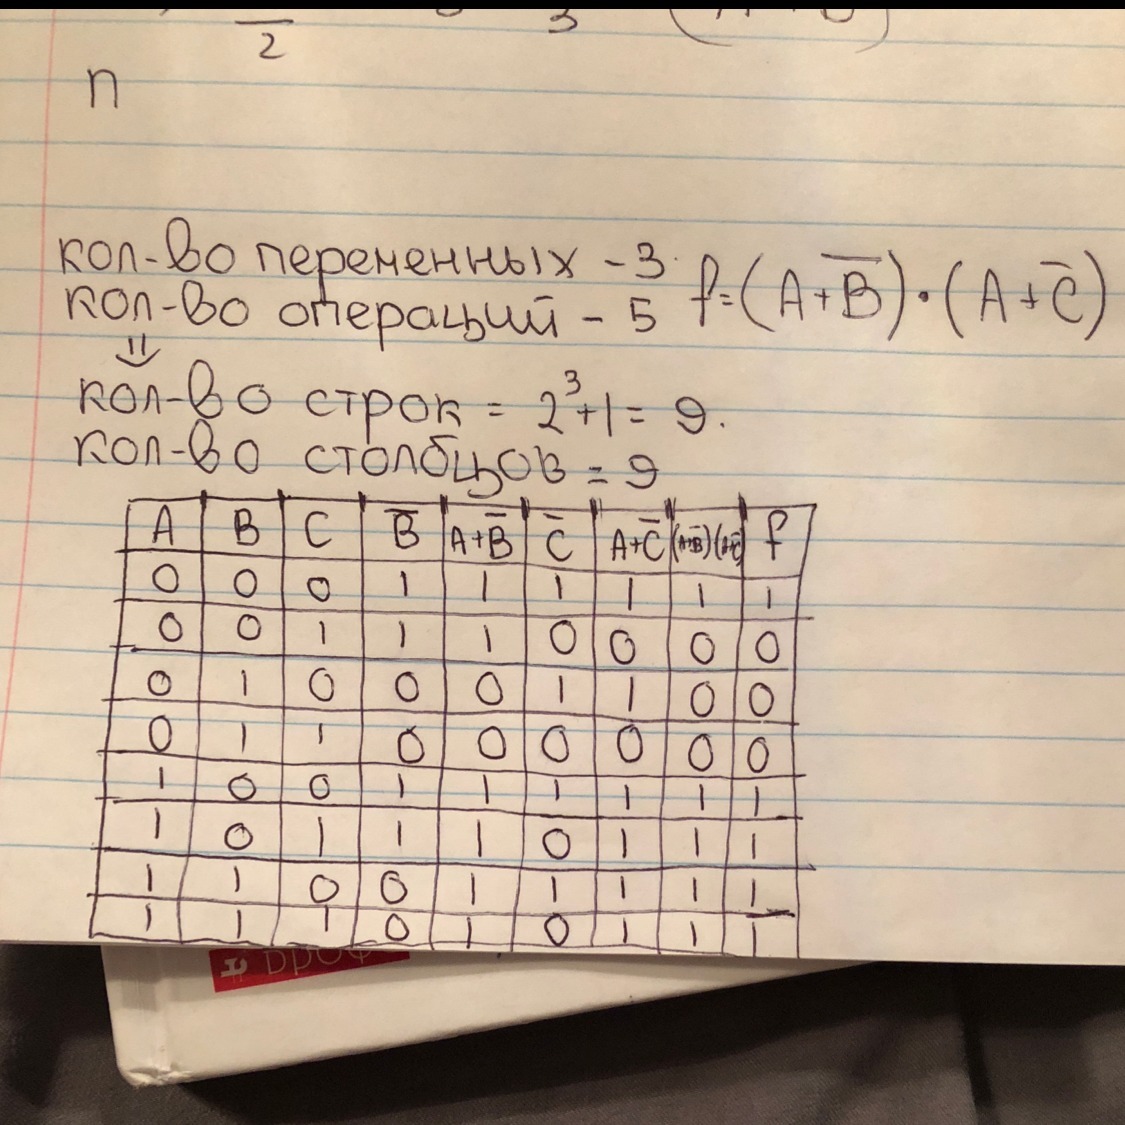 2
3
n
кол-во переменных - 3
кол-во операций - 5 f=(A+B̅)·(A+C̅)
⇓
кол-во строк = 2³+1 = 9.
кол-во столбцов = 9
A B C B̅ A+B̅ C̅ A+C̅ (A+B̅)(A+C̅) f
0 0 0 1 1 1 1 1 1
0 0 1 1 1 0 0 0 0
0 1 0 0 0 1 1 0 0
0 1 1 0 0 0 0 0 0
1 0 0 1 1 1 1 1 1
1 0 1 1 1 0 1 1 1
1 1 0 0 1 1 1 1 1
1 1 1 0 1 0 1 1 1